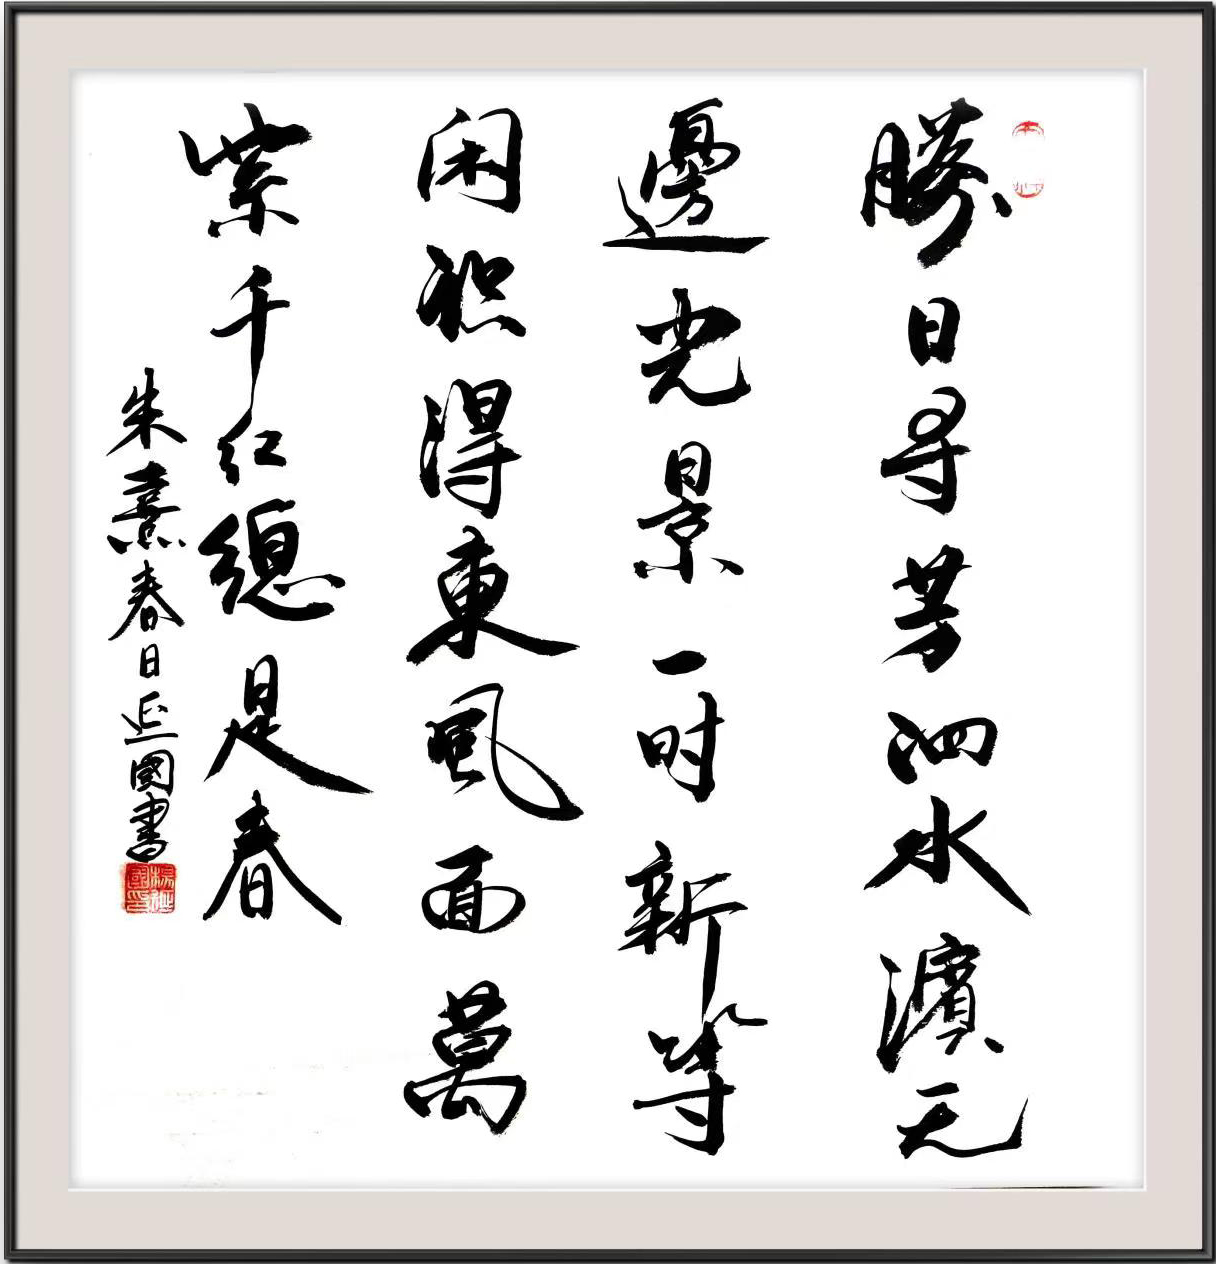 勝日寻芳泗水濱无
邊光景一时新等
闲识得東風面萬
紫千红總是春
朱熹春日延國書